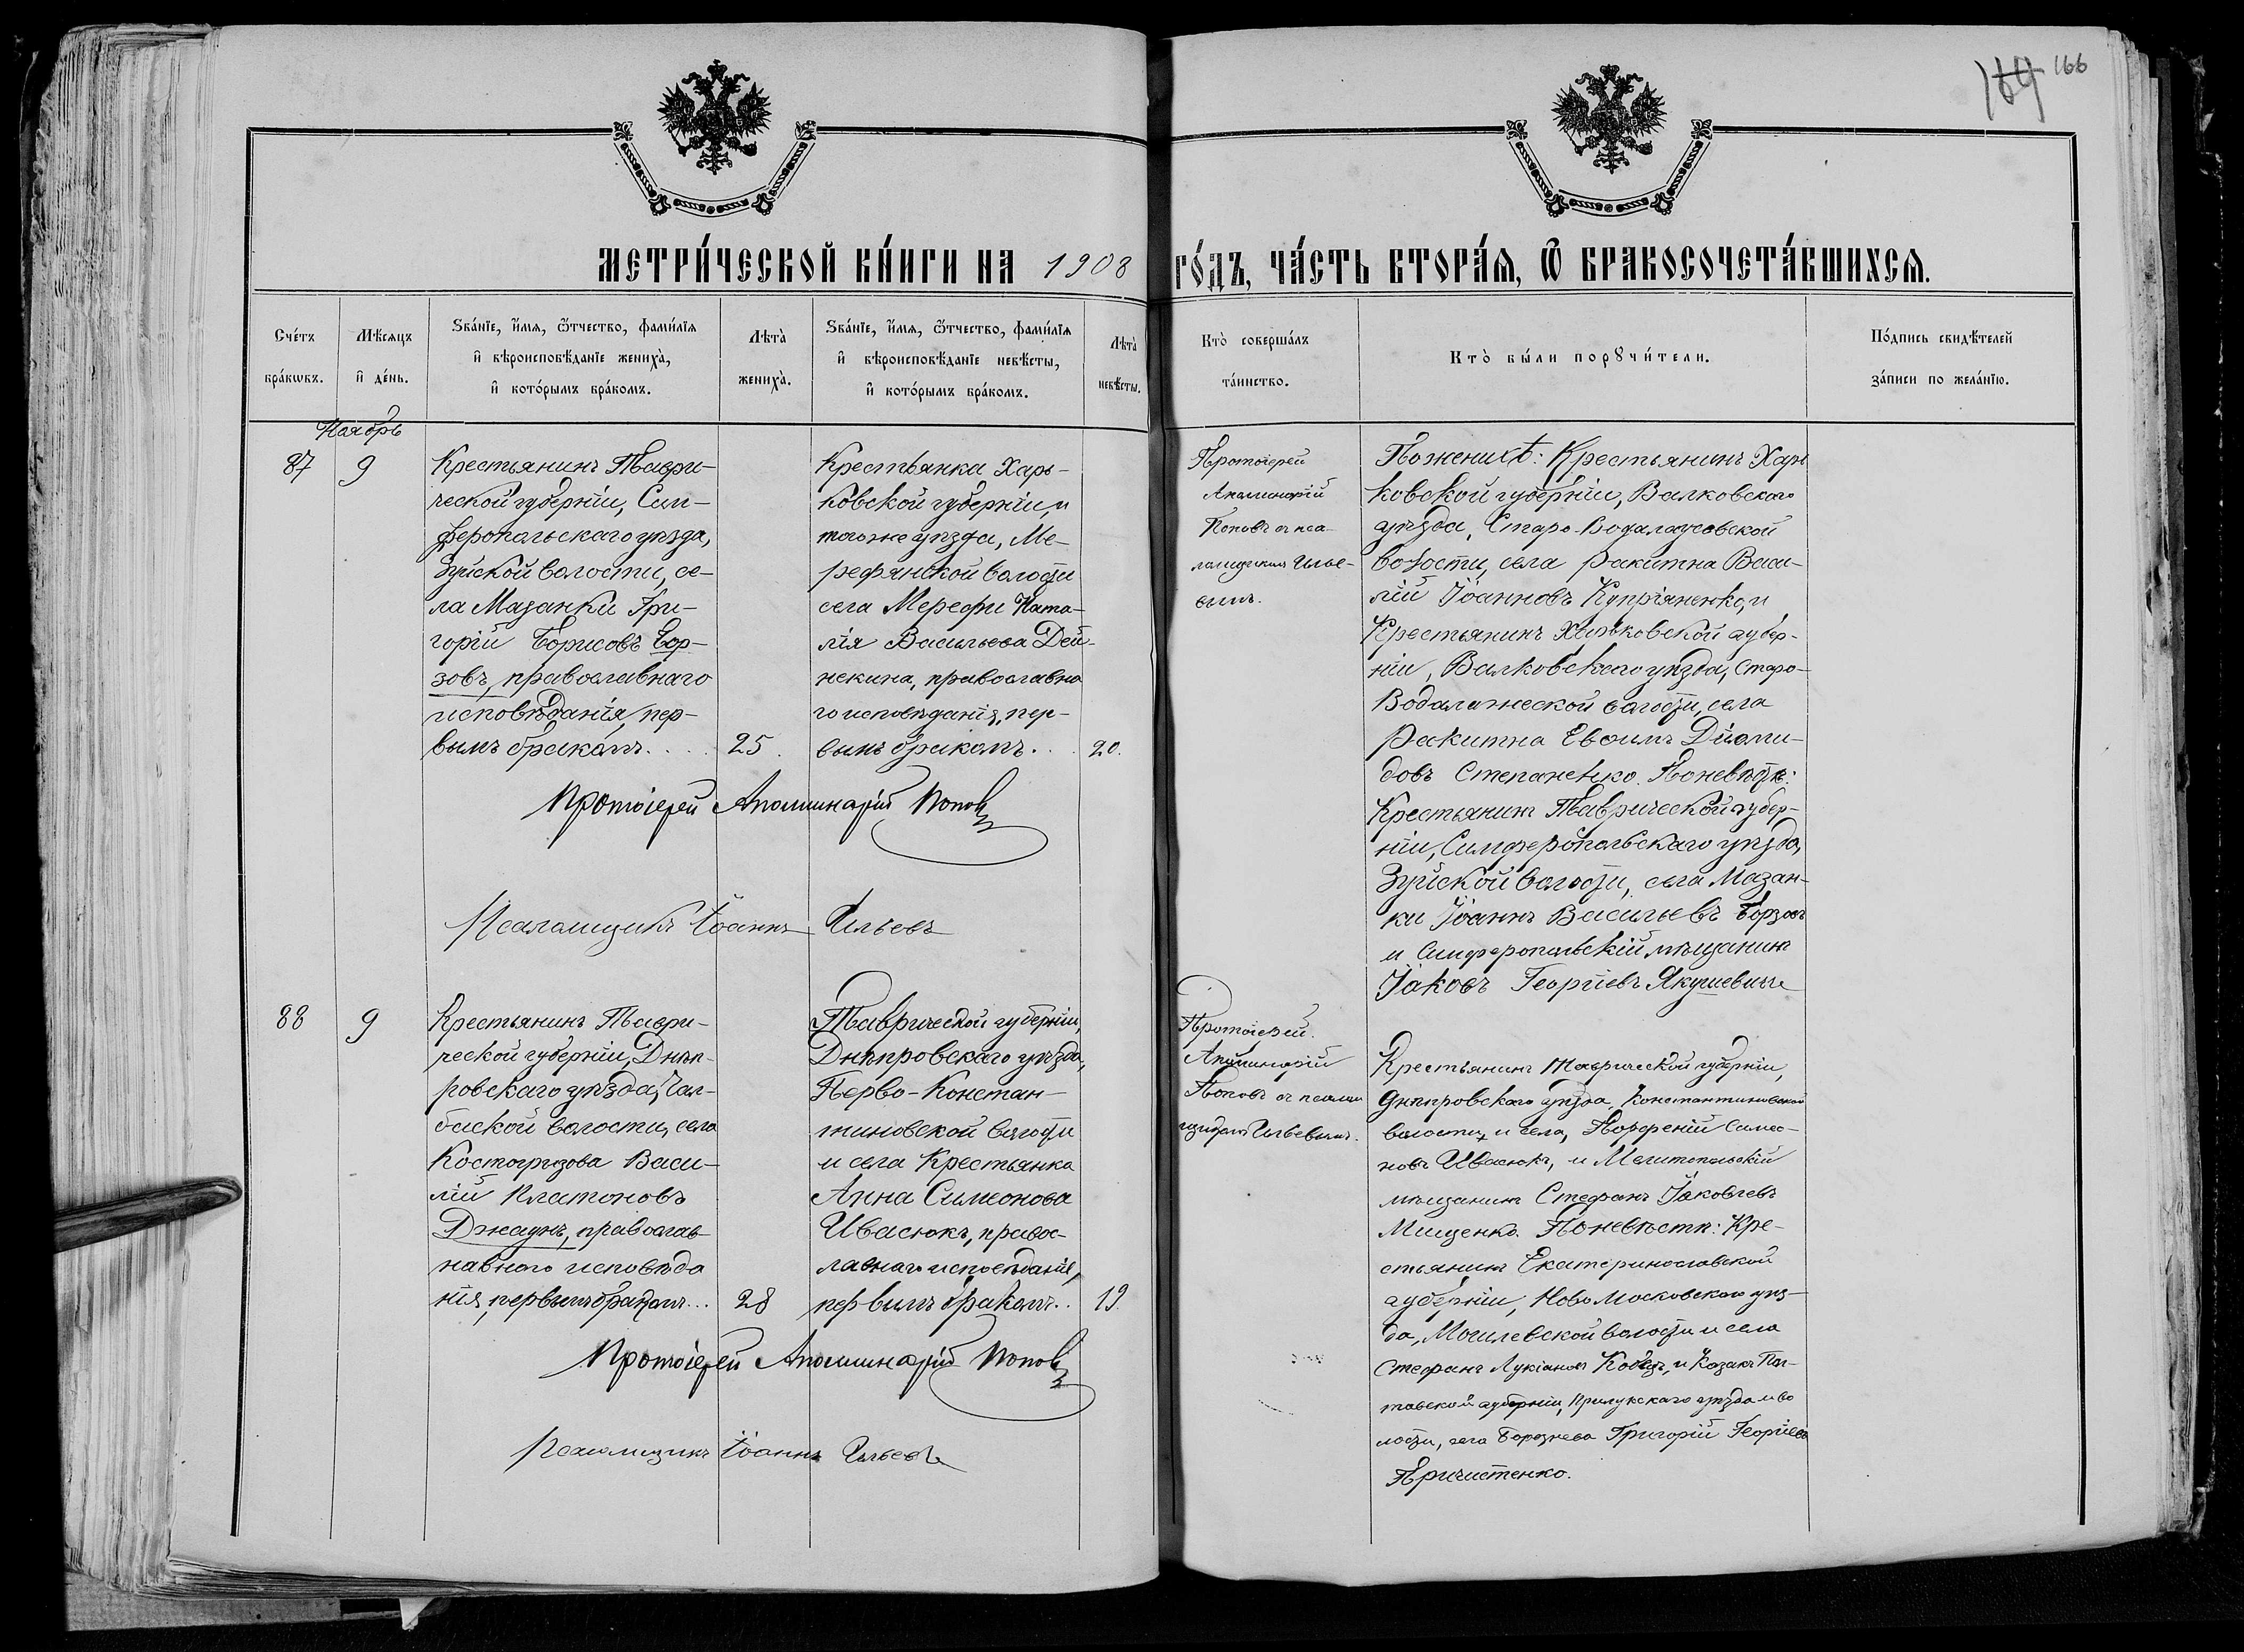 164 166
МЕТРИ́ЧЕСКОЙ КНИ́ГИ НА 1908 ГО́ДЪ, ЧА́СТЬ ВТОРА́Я, Ѿ БРАКОСОЧЕТА́ВШИХСЯ.
Сче́тъ бра́кѡвъ.
Мѣ́сяцъ и҆ де́нь.
Ѕва́нїе, и҆́мя, ѻ҆́тчество, фами́лїя
и҆ вѣроисповѣ́данїе жениха̀,
и҆ кото́рымъ бра́комъ.
Лѣта̀ жениха̀.
Ѕва́нїе, и҆́мя, ѻ҆́тчество, фами́лїя
и҆ вѣроисповѣ́данїе невѣ́сты,
и҆ кото́рымъ бра́комъ.
Лѣта̀ невѣ́сты.
Кто̀ соверша́лъ
та́инство.
Кто̀ бы́ли порꙋчи́тели.
По́дпись свидѣ́телей
за́писи по жела́нїю.
Ноябрь
87
9
Крестьянинъ Таври-
ческой губерніи, Сим-
феропольскаго уѣзда,
Зуйской волости, се-
ла Мазанки Гри-
горій Борисовъ Бор-
зовъ, православнаго
исповѣданія, пер-
вымъ бракомъ....
25.
Крестьянка Харь-
ковской губерніи, и
того же уѣзда, Ме-
рефянской волости
села Мерефи Ната-
лія Васильева Дей-
некина, православна
го исповѣданія, пер-
вымъ бракомъ...
20.
Протоіерей
Аполинарій
Поповъ съ пса-
ломщикомъ Илье-
вымъ.
По женихѣ: Крестьянинъ Харь
ковской губерніи, Валковскаго
уѣзда, Старо-Водалажской
волости, села Ракитна Васи-
лій Іоанновъ Купріяненко, и
Крестьянинъ Харьковской губер-
ніи, Валковскаго уѣзда, Старо-
Водалажеской волости, села
Ракитна Евфимъ Діоми-
довъ Степаненко. По невѣстѣ:
Крестьянинъ Таврической губер-
ніи, Симферопольскаго уѣзда,
Зуйской волости, села Мазан-
ки Іоаннъ Васильевъ Борзовъ
и Симферопольскій мѣщанинъ
Іаковъ Георгіевъ Якушевичъ
Протоіерей Аполинарій Поповъ
Псаломщикъ Іоаннъ Ильевъ
88
9
Крестьянинъ Таври-
ческой губерніи, Днѣп-
ровскаго уѣзда, Чал-
баской волости, села
Костогрызова Васи-
лій Платоновъ
Джаунъ, православ
навного исповѣда
нія, первымъ бракомъ...
28
Таврической губерніи,
Днѣпровскаго уѣзда,
Перво-Констан-
тиновской волости
и села Крестьянка
Анна Симеонова
Ивасюкъ, правос-
лавнаго исповѣданія,
первымъ бракомъ..
19.
Протоіерей.
Аполинарій
Поповъ съ псалом
щикомъ Ильевымъ.
Крестьянинъ Таврической губерніи,
Днѣпровскаго уѣзда, Константиновской
волости, и села, Порфеній Симео-
новъ Ивасюкъ, и Мелитопольскій
мѣщанинъ Стефанъ Іаковлевъ
Мищенко. По невѣстѣ: Кре-
стьянинъ Екатеринославской
губерніи, Ново Московскаго уѣз-
да, Могилевской волости и села
Стефанъ Лукіановъ Кобецъ, и Казакъ Пол-
тавской губерніи, Прилукскаго уѣзда и во
лости, села Борознева Григорій Георгіевъ
Причистенко.
Протоіерей Аполинарій Поповъ
Псаломщикъ Іоаннъ Ильевъ